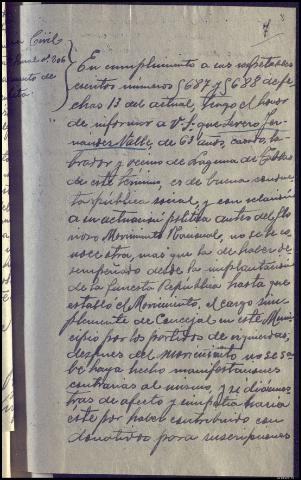 7
Civil
nal nº 306
mento de
En cumplimiento a sus respetables
escritos numeros 5687 y 5688 de fe
chas 13 del actual, tengo el honor
de informar a V.S. que Severo Fer
nandez Valle, de 63 años, casado, la
brador y vecino de Laguna de
de este termino, es de buena conduc
ta publica social, y con relación
a su actuación politica antes del Glo
rioso Movimiento Nacional, no se le co
noce otra, mas que la de haber de
sempeñado desde la implantación
de la funesta Republica hasta que
estalló el Movimiento, el cargo sim
plemente de Concejal en este Muni
cipio por los partidos de izquierdas,
despues del movimiento no se sa
be haya hecho manifestaciones
contrarias al mismo, y si demues
tras de afecto y simpatia hacia
éste por haber contribuido con
donativos para suscripciones